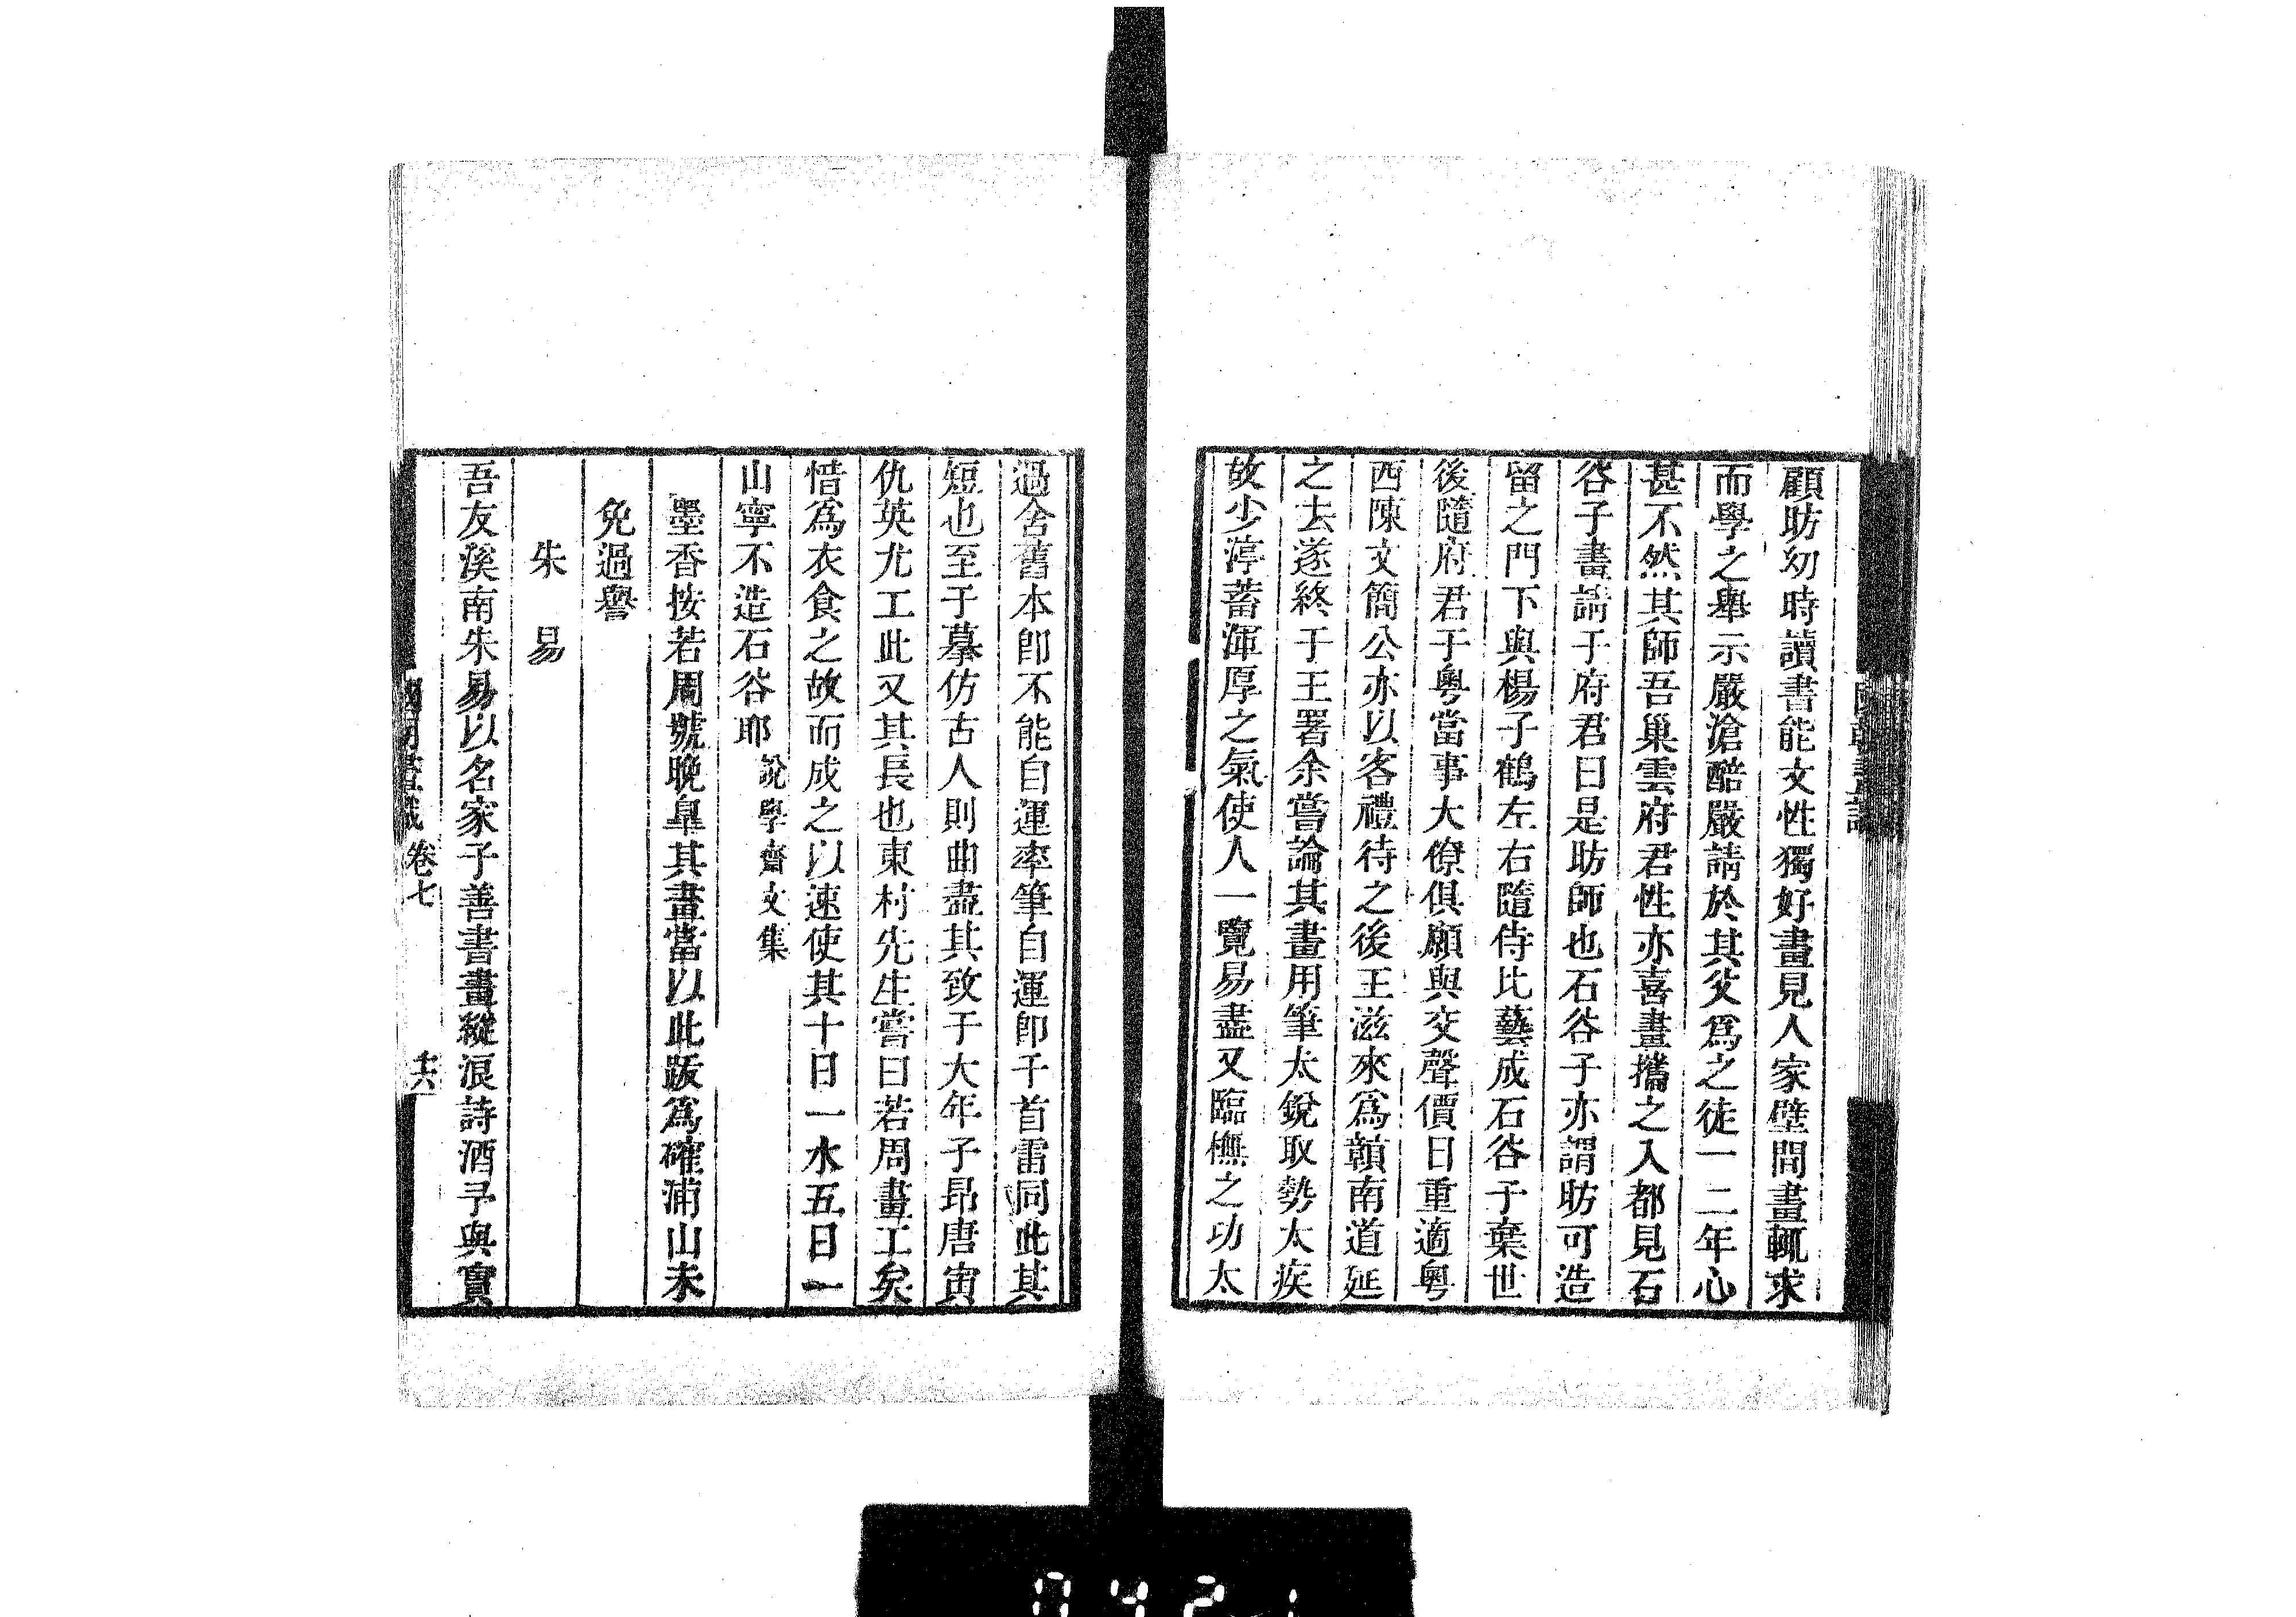 顧昉幼時讀書能文性獨好畫見人家壁間畫輒求
而學之舉示嚴滄醅嚴請於其父爲之徒一二年心
甚不然其師吾巢雲府君性亦喜畫攜之入都見石
谷子畫請于府君曰是昉師也石谷子亦謂昉可造
留之門下與楊子鶴左右隨侍比藝成石谷子棄世
後隨府君于粵當事大僚俱願與交聲價日重適粵
西陳文簡公亦以客禮待之後王滋來爲贑南道延
之去遂終于王署余嘗論其畫用筆太銳取勢太疾
故少渟蓄渾厚之氣使人一覽易盡又臨橅之功太
過舍舊本卽不能自運率筆自運卽千首雷同此其
短也至于摹仿古人則曲盡其致于大年子昂唐寅
仇英尤工此又其長也東村先生嘗曰若周畫工矣
惜爲衣食之故而成之以速使其十日一水五日一
山寧不造石谷耶 說學齋文集
墨香按若周號晚皐其畫當以此跋爲確浦山未
免過譽
朱易
吾友溪南朱易以名家子善書畫縱浪詩酒予與實
國朝畫識 卷七 十六